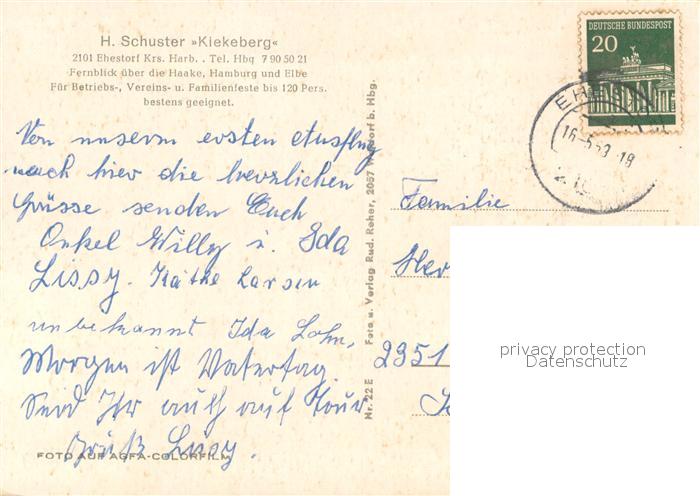 H. Schuster »Kiekeberg«
2101 Ehestorf Krs. Harb. . Tel. Hbg 7 90 50 21
Fernblick über die Haake, Hamburg und Elbe
Für Betriebs-, Vereins- u. Familienfeste bis 120 Pers.
bestens geeignet.
Von unserm ersten Ausflug
nach hier die herzlichen
Grüsse senden Euch
Onkel Willy u. Ida
Lissy. Käthe Larsen
unbekannt Ida Lohn.
Morgen ist Vatertag
Seid Ihr auch auf Tour
Gruß Lissy.
FOTO AUF AGFA-COLORFILM
Nr. 22 E Foto u. Verlag Rud. Reher, 2057 b. Hbg.
DEUTSCHE BUNDESPOST
20
EHE
16-5 -18
Familie
Her
2351
privacy protection
Datenschutz